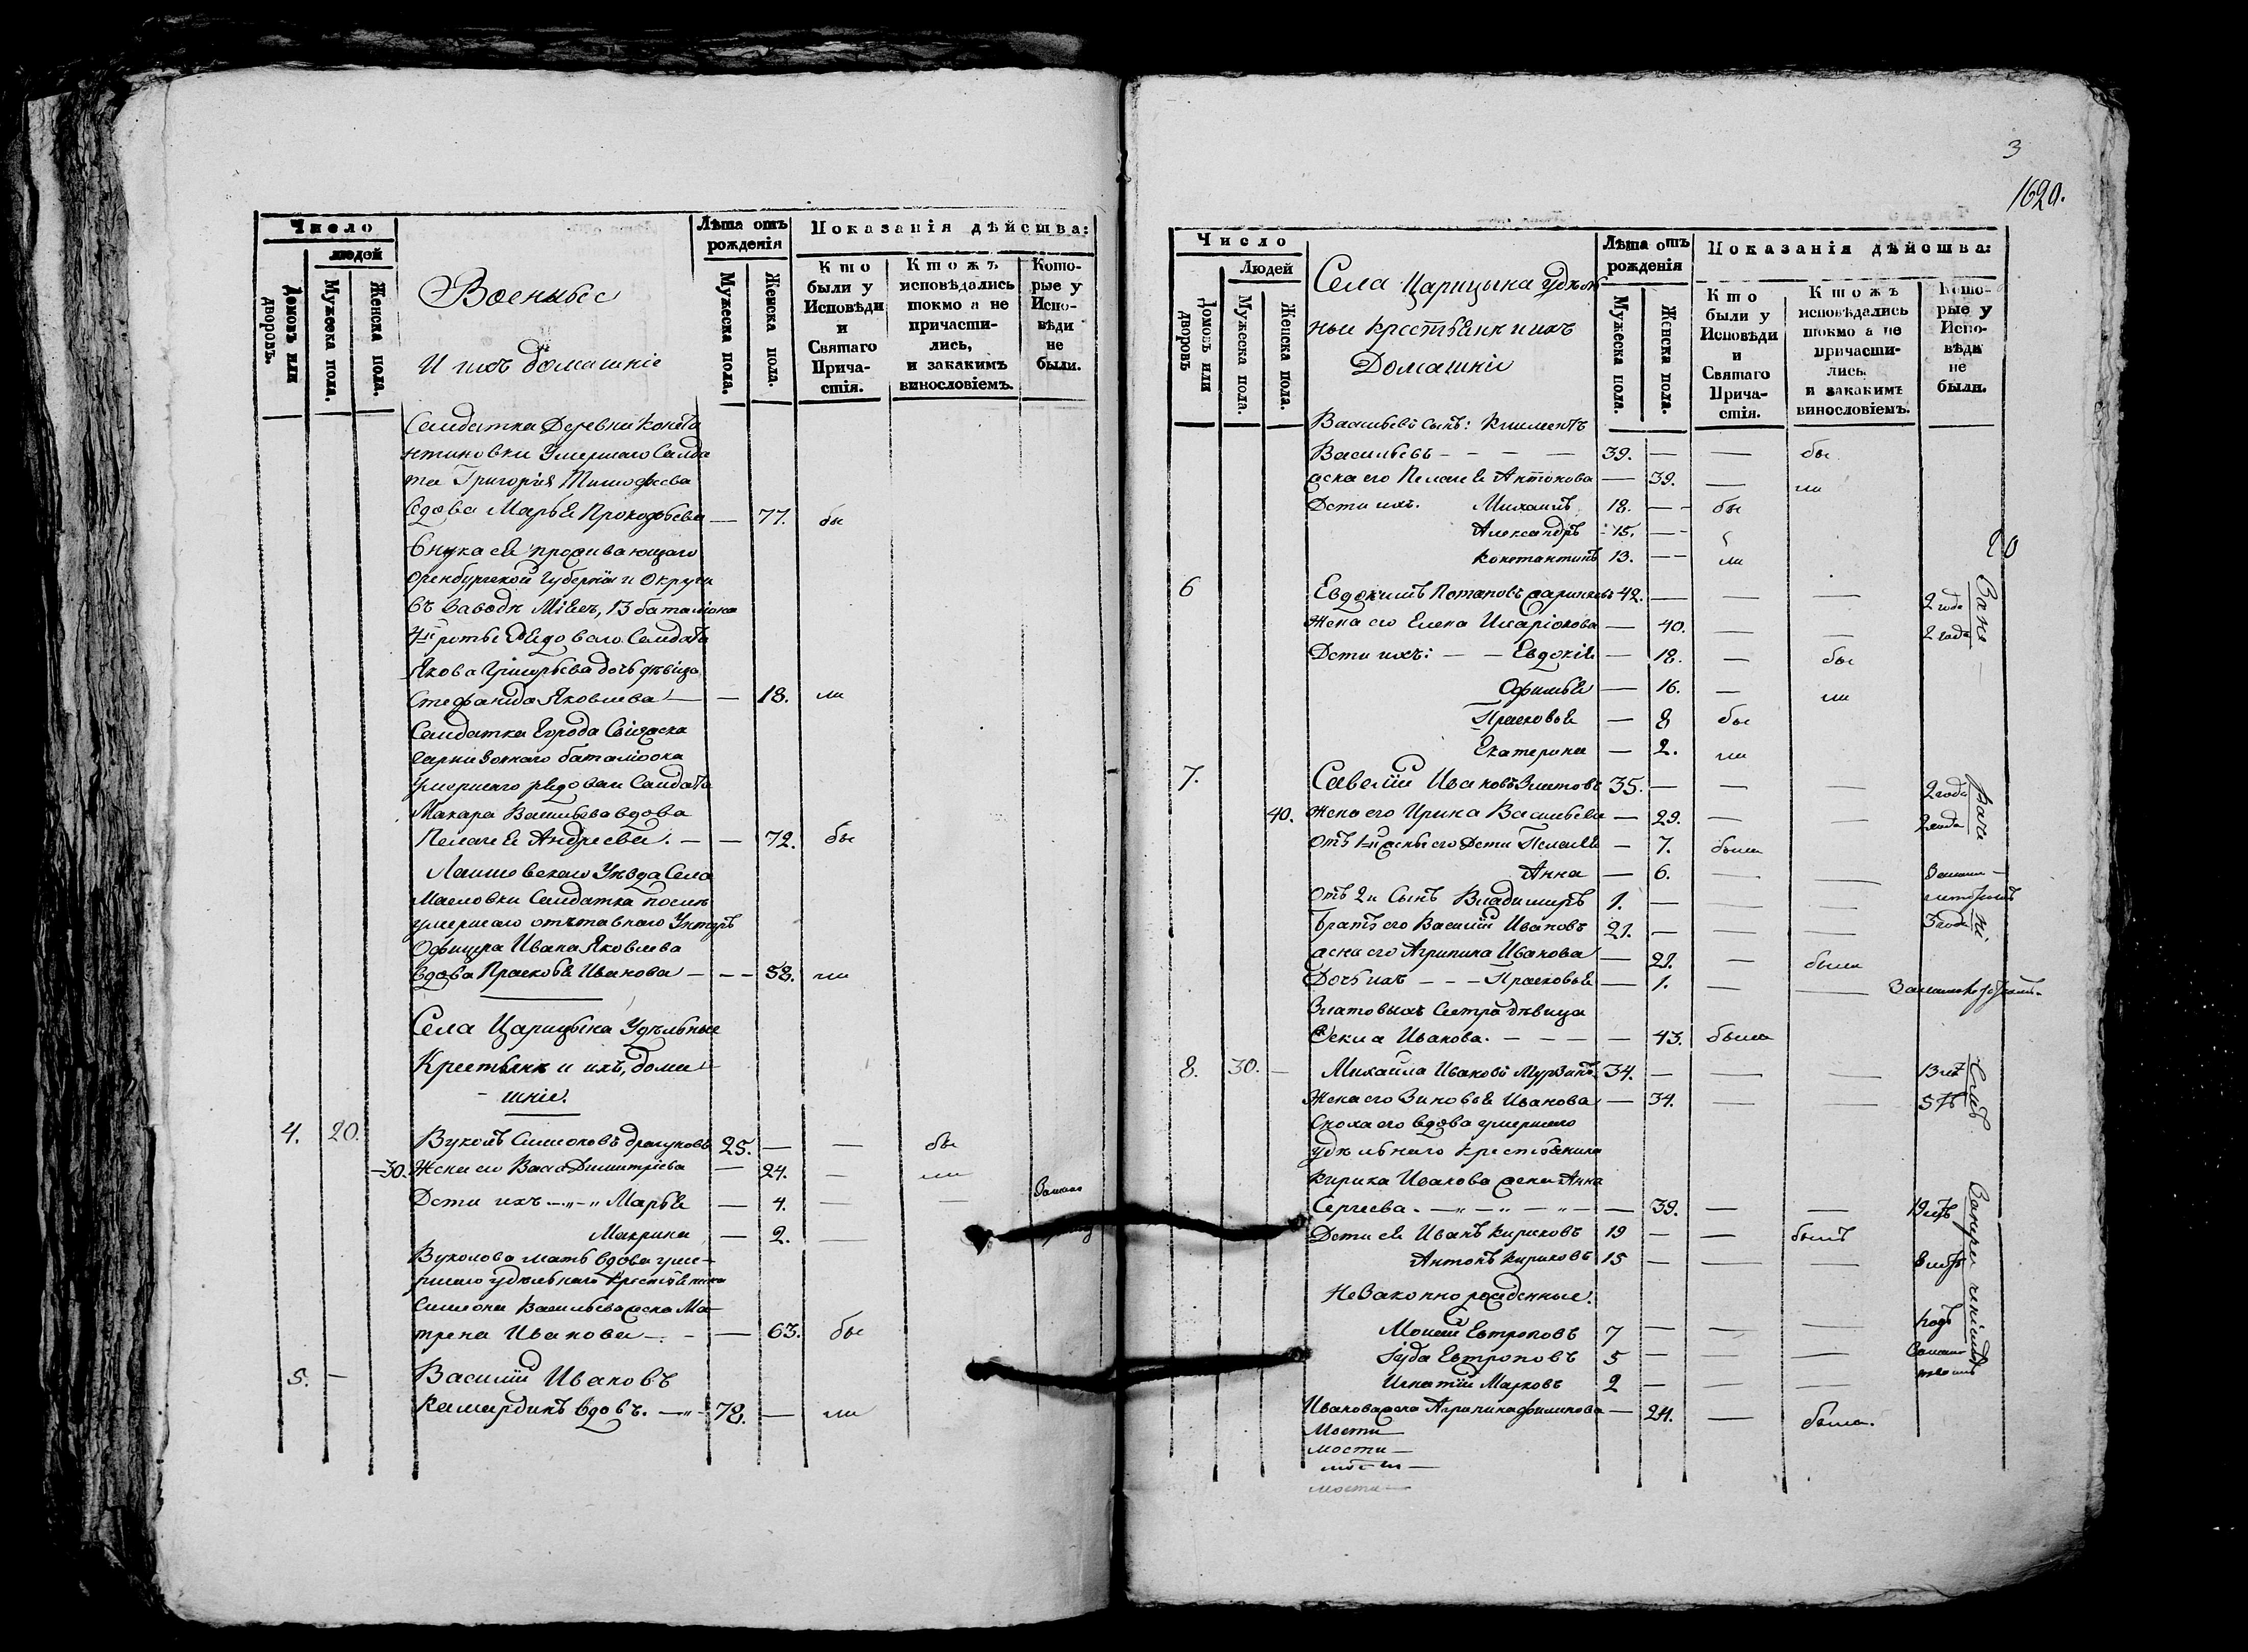 Число
людей
Домовъ или дворовъ.
Мужеска пола.
Женска пола.
Военныес
И ихъ домашнiе
Лѣта отъ рожденiя
Мужеска пола.
Женска пола.
Показанiя дѣйства:
Кто были у Исповѣди и Святаго Причастiя.
Ктожъ исповѣдались токмо а не причастились, и закакимъ винословiемъ.
Которые у Исповѣди не были.
Салдатка Деревни Конста
нтиновки Умершаго Салда
та Григорiя Тимофѣева
вдова Марья Прокофьева — 77. бы
внука ея проживающаго
Оренбургской Губернiи и Округи
въ Заводѣ Мiяск, 13 баталiона
4й роты рядоваго Салдата
Якова Григорьева дочь дѣвица
Стефанида Яковлева — — 18. ли
Салдатка Города Свiяжска
гарнизоннаго баталiона
умершаго рядоваго Салдата
Макара Васильева вдова
Пелагея Андреева. — — 72. бы
Лаишевскаго Уѣзда Села
Масловки Салдатка послѣ
умершаго отставнаго Унтеръ
Офицера Ивана Яковлева
вдова Прасковья Иванова — — — 58. ли
Села Царицына Удѣльные
Крестьяне и ихъ, дома
-шнiе.
4. 20. Вуколъ Симеоновъ Драгуновъ 25. — — бы
-30. Жена его Васа Димитрiева — 24. — ли
Дети ихъ — „ — „ Марья — 4. — —
Макрина — 2. —
Вуколова мать вдова уме-
ршаго удѣльнаго Крестьянина
Симеона Васильева жена Ма-
трена Иванова — - — 63. бы
5. — Василiй Ивановъ
Камардинъ вдовъ. — „ - 78. — ли
3
1620.
Число
Людей
Домовъ или дворовъ
Мужеска пола.
Женска пола.
Села Царицына удѣль
ныи крестьяне и ихъ
Домашнiи
Лѣта отъ рожденiя
Мужеска пола.
Женска пола.
Показанiя дѣйства:
Кто были у Исповѣди и Святаго Причастiя.
Ктожъ исповѣдались токмо а не причастились. и закакимъ винословiемъ.
Которые у Исповѣди не были.
Васильевъ сынъ: Климентъ
Васильевъ - — — — 39. — — бы
жена его Пелагея Антонова — 39. — ли
Дети ихъ. Михаилъ 18. — - бы
Александръ 15. — -
Константинъ 13. — - ли
6 Евдокимъ Потаповъ 42. — — — 2 года
Жена его Елена Иларiонова — 40. — — 2 года
Дети ихъ: — — Евдокiя — 18. — бы
Офимья — 16. — ли
Прасковья — 8 бы
Екатерина — 2. ли
7. Савелiй Ивановъ Златовъ 35. — — — 2 года
40. Жена его Ирина Васильева — 29. — — 2 года
Отъ 1й жены его Дети Пелагея — 7. была
Анна — 6. — —
Отъ 2й Сынъ Владимиръ 1. — — —
Братъ его Василiй Ивановъ 21. — — — 3 года
жена его Агрипина Иванова — 21. — была
Дочь ихъ - — - Прасковья — 1. — —
Златовыхъ Сестра дѣвица
Фекла Иванова. - — — — — 43. была
8. 30. — Михайла Ивановъ Мурзинъ 34. — — — 13 лѣ
Жена его Зиновья Иванова — 34. — —
Сноха его вдова умершаго
удѣльнаго крестьянина
Кирика Иванова жена Анна
Сергеева. — „ — „ — „ — — 39. — —
Дети ея Иванъ Кириковъ 19 — — былъ
Антонъ Кириковъ 15 — — —
Незаконно рожденные.
Моисей Евтроповъ 7 — — —
Iуда Евтроповъ 5 — —
Игнатiй Марковъ 2 — — —
Иванова жена Агрипина Филипова — 24. — была.
Мости
мости —
мости —
мости —